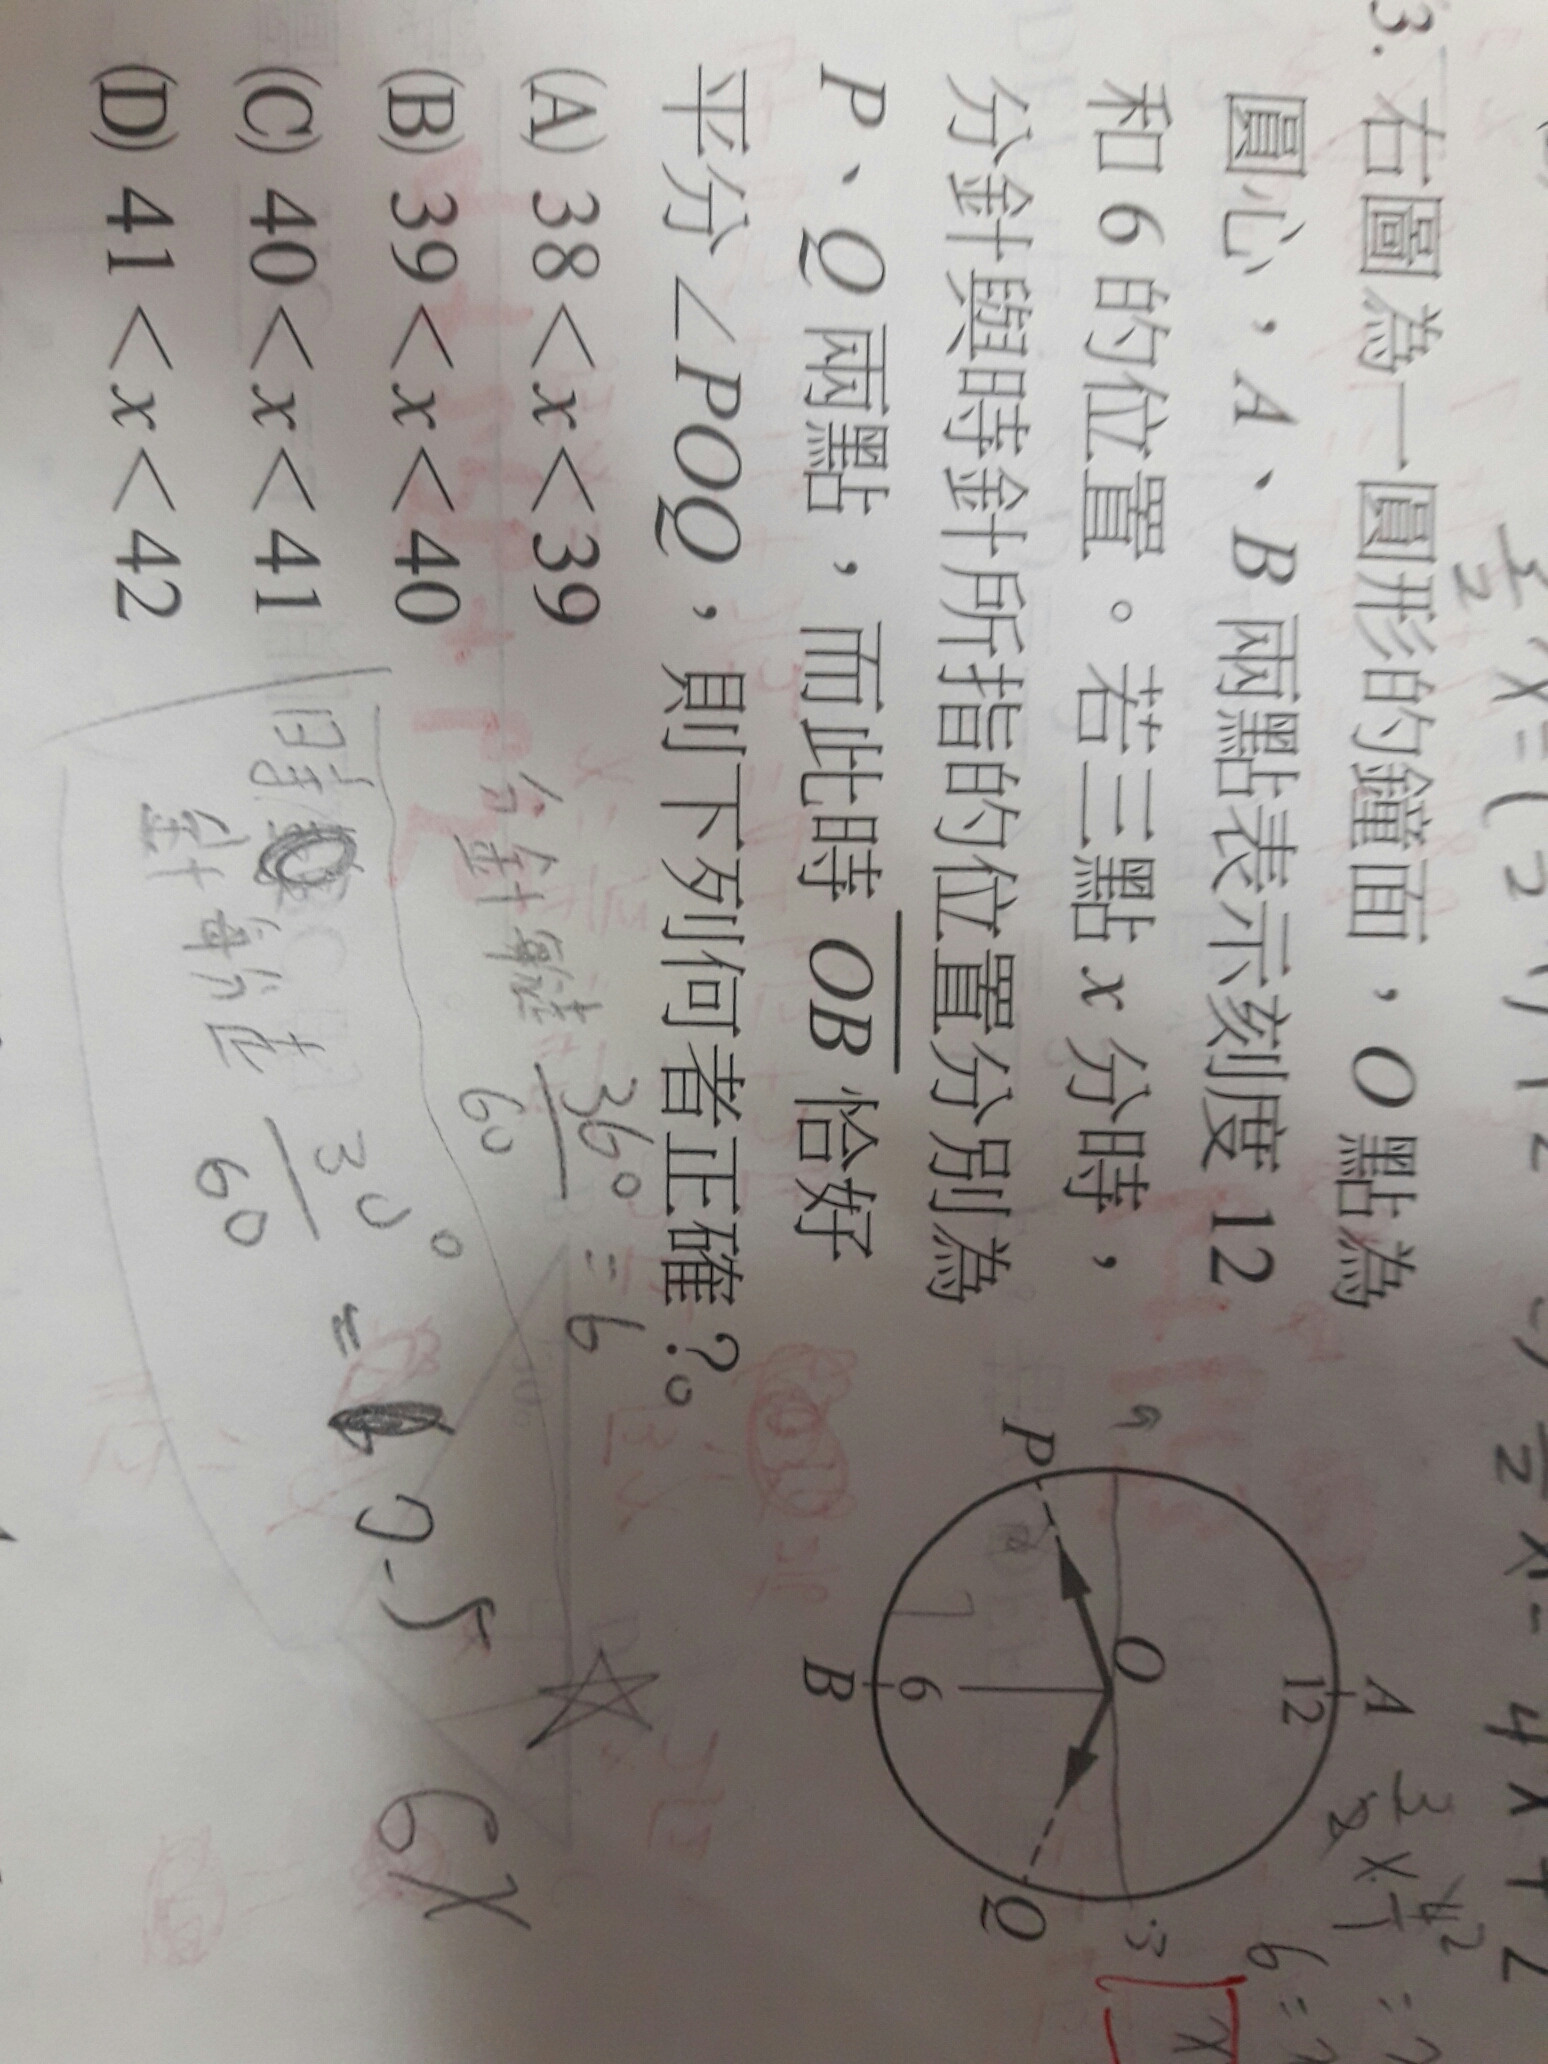 3. 右圖為一圓形的鐘面，O 點為
圓心，A、B 兩點表示刻度 12
和 6 的位置。若三點 x 分時，
分針與時針所指的位置分別為
P、Q 兩點，而此時 OB 恰好
平分∠POQ，則下列何者正確？
(A) 38＜x＜39
(B) 39＜x＜40
(C) 40＜x＜41
(D) 41＜x＜42
A
12
O
9
3
P
Q
6
B
分針
360
60
= 6°
時
針每分走
30°
60
=
0.5
6x